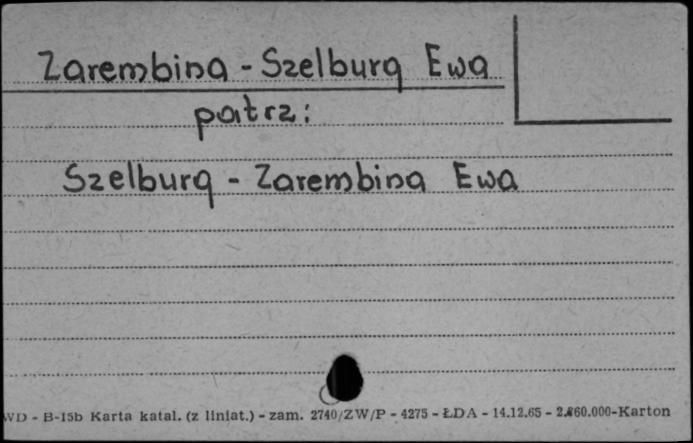 Zarembina - Szelburg Ewa
patrz:
Szelburg - Zarembina Ewa
WD - B-15b Karta katal. (z liniat.) - zam. 2740/ZW/P - 4275 - ŁDA - 14.12.65 - 2.860.000-Karton